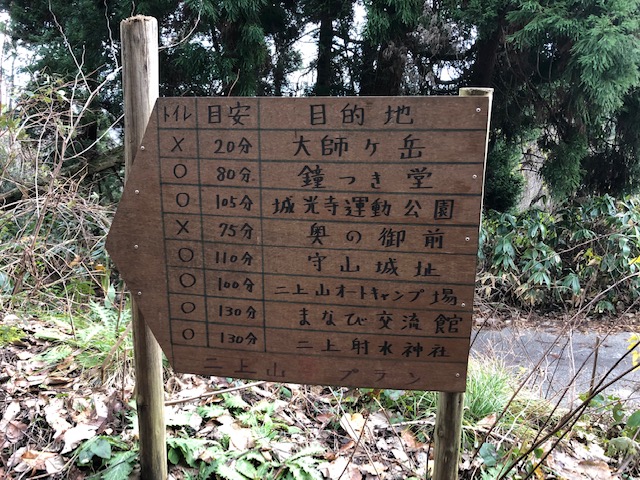 トイレ 目安 目的地
X 20分 大師ヶ岳
O 80分 鐘つき堂
O 105分 城光寺運動公園
X 75分 奥の御前
O 110分 守山城址
O 100分 二上山オートキャンプ場
O 130分 まなび交流館
O 130分 二上射水神社
二上山 プラン